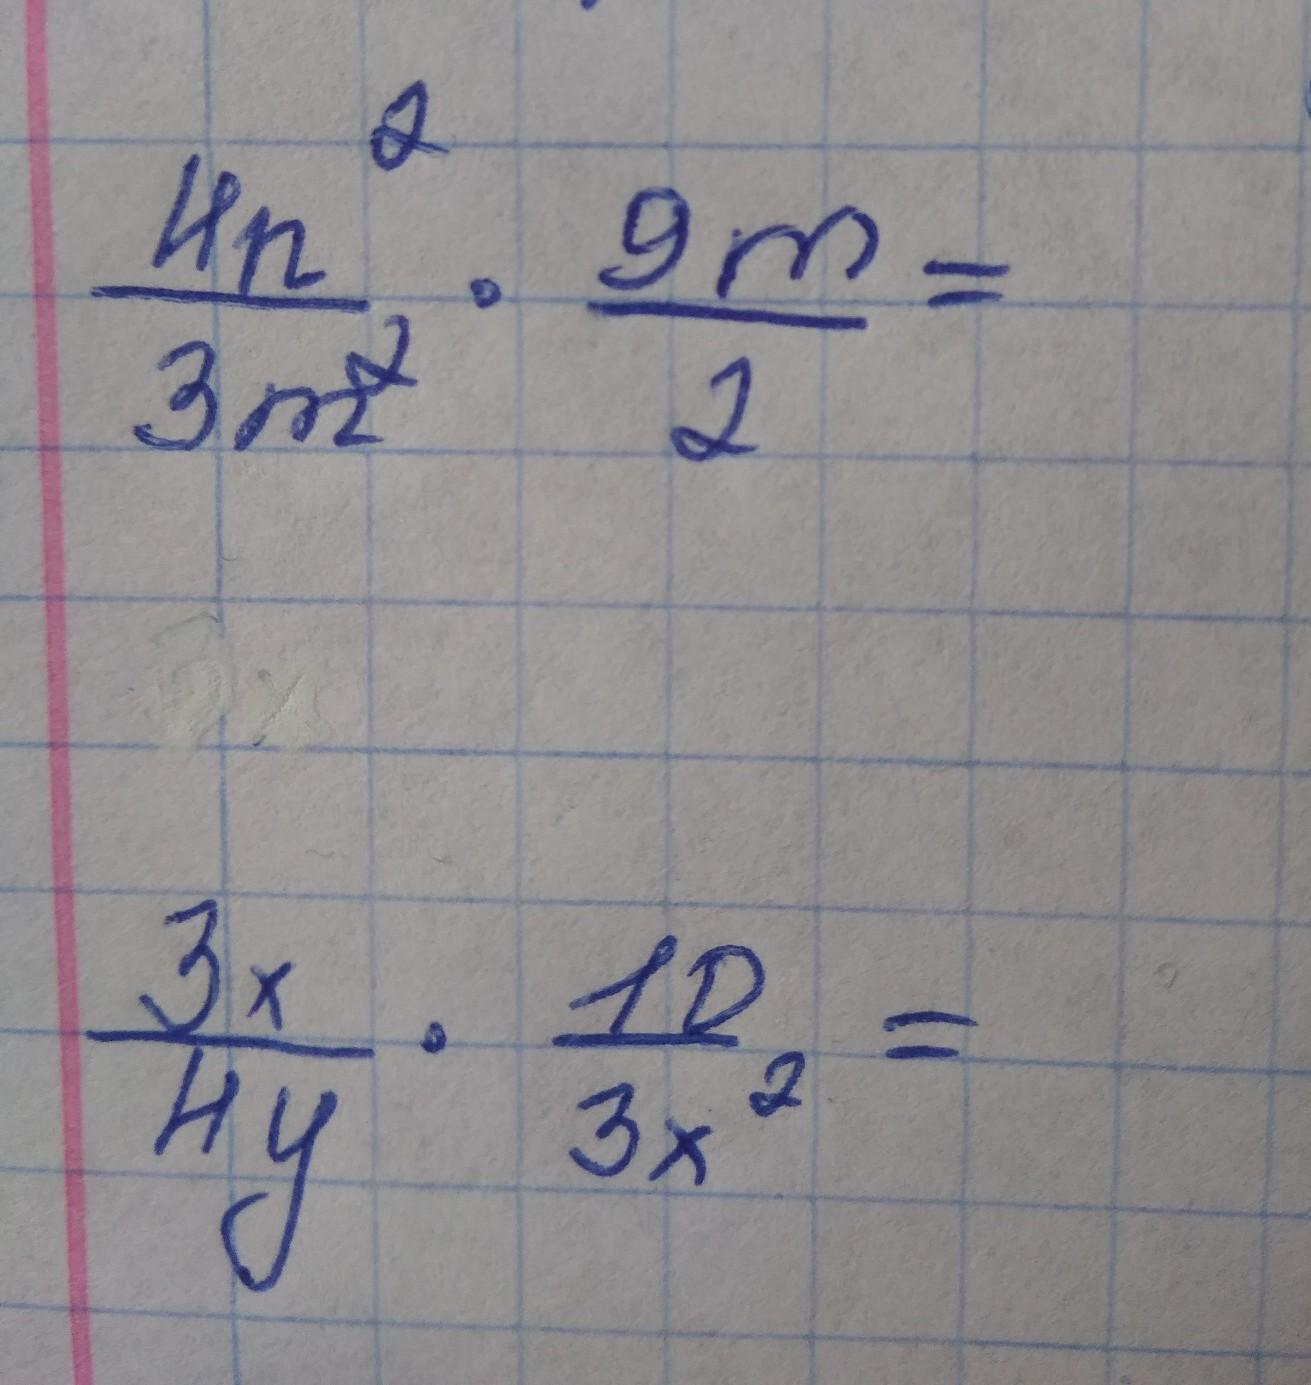 4n²/3m² · 9m/2 =
3x/4y · 10/3x² =